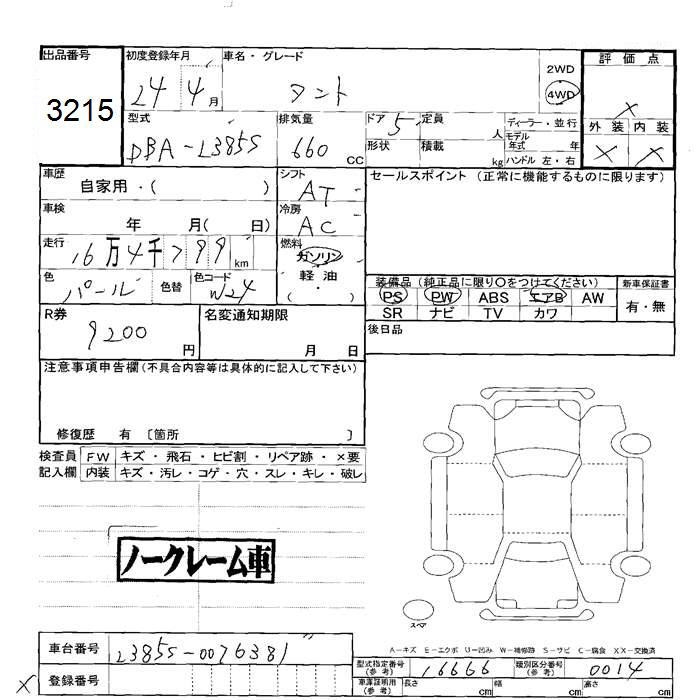 出品番号
3215
初度登録年月
24 4月
車名・グレード
タント
2WD
4WD
評価点
×
型式
DBA-L385S
排気量
660 cc
ドア 5
形状
定員 人
積載 kg
ディーラー・並行
モデル年式 年
ハンドル 左・右
外装 内装
× ×
車歴
自家用・( )
シフト
AT
セールスポイント(正常に機能するものに限ります)
車検
年 月( 日)
冷房
AC
走行
16万4千799km
燃料
ガソリン
軽油
( )
色
パール
色替
色コード
W24
装備品(純正品に限り○をつけてください)
新車保証書
PS PW ABS エアB AW
SR ナビ TV カワ
有・無
R券
9200円
名変通知期限
月 日
後日品
注意事項申告欄(不具合内容等は具体的に記入して下さい)
修復歴 有 〔箇所 〕
検査員記入欄
FW キズ・飛石・ヒビ割・リペア跡・×要
内装 キズ・汚レ・コゲ・穴・スレ・キレ・破レ
ノークレーム車
スペア
A-キズ E-エクボ U-凹み W-補修跡 S-サビ C-腐食 XX-交換済
車台番号
L385S-0076381
型式指定番号(参考)
16666
類別区分番号(参考)
0014
× 登録番号
車庫証明用(参考)
長さ cm
幅 cm
高さ cm